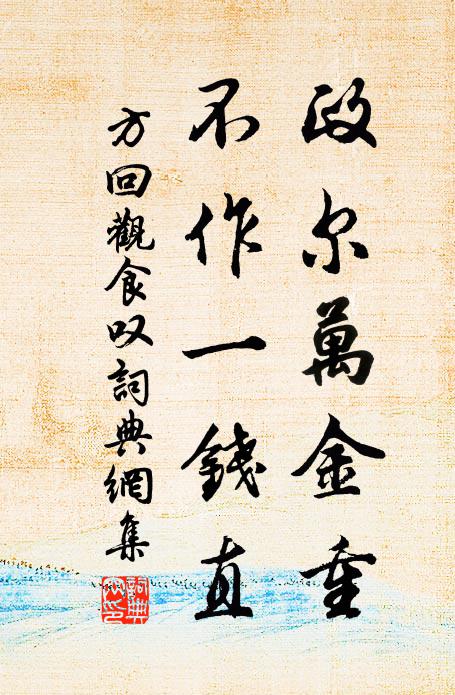 政尔萬金重
不作一錢直
方回觀食叹詞典網集